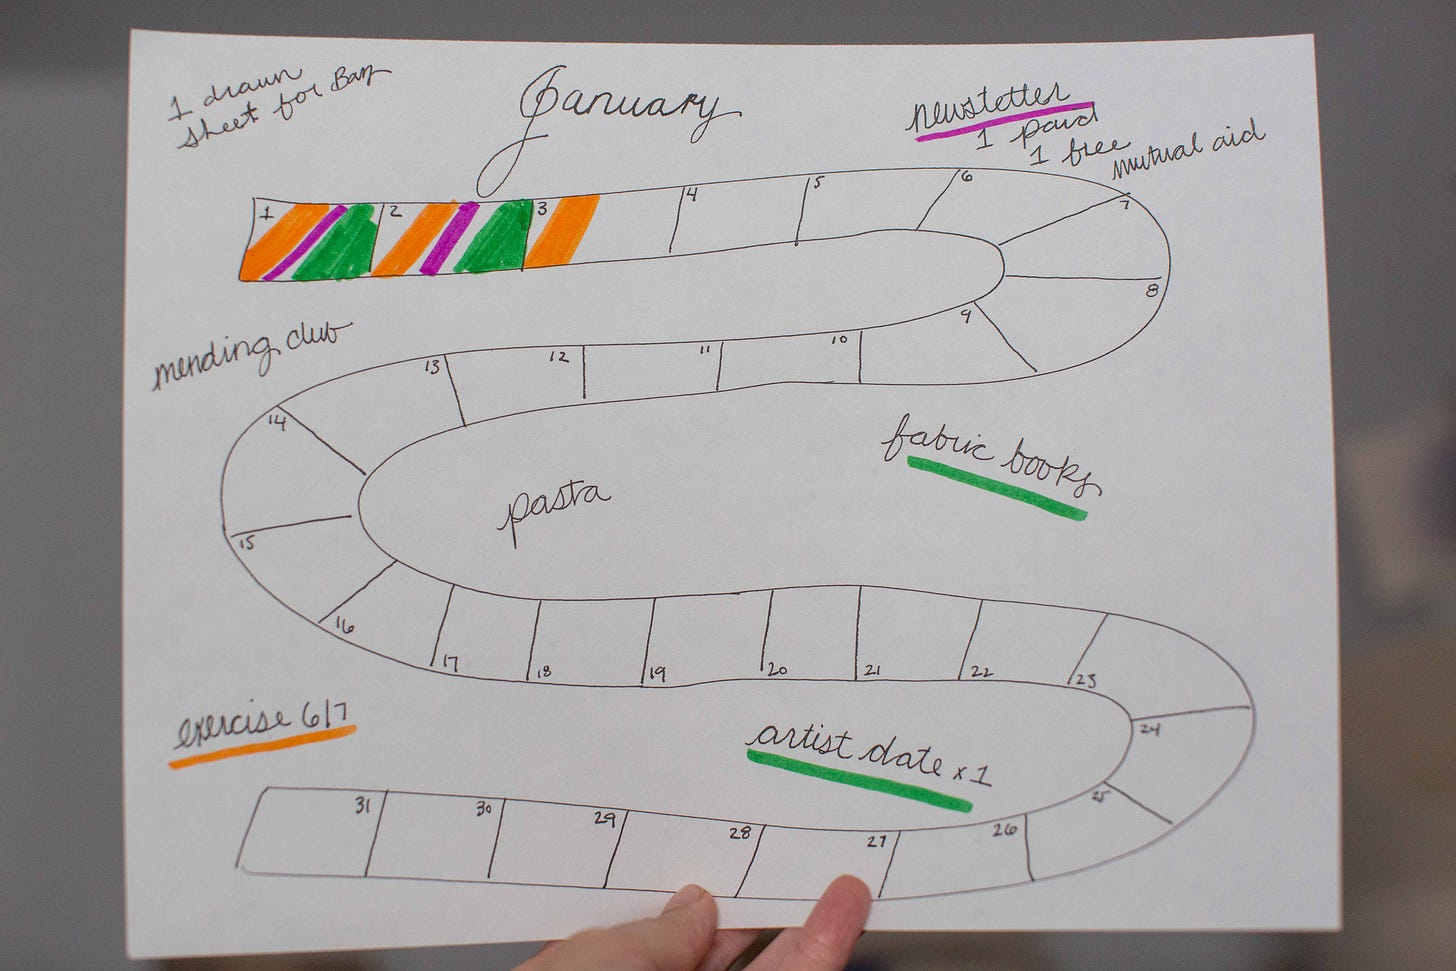 1 drawn
sheet for Bay
January
newsletter
1 paid
1 free
mutual aid
1
2
3
4
5
6
7
8
9
10
11
12
13
mending club
14
fabric books
pasta
15
16
17
18
19
20
21
22
23
24
25
exercise 6/7
artist date x 1
26
27
28
29
30
31